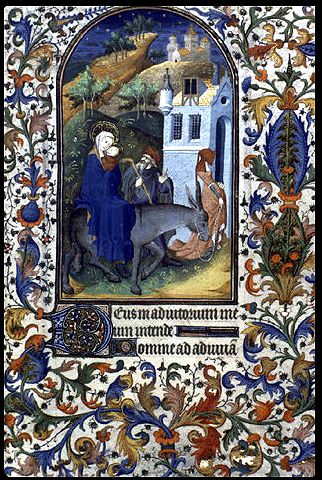 Deus in adiutorium me
um intende
Domine ad adiuuã